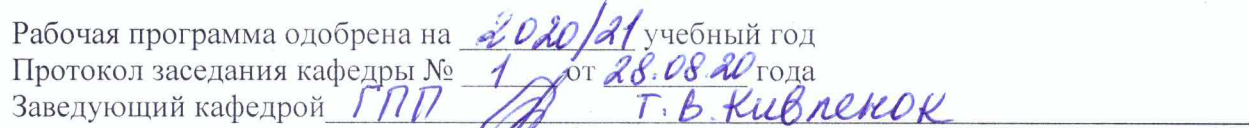 Рабочая программа одобрена на 2020/21 учебный год
Протокол заседания кафедры № 1 от 28.08.20 года
Заведующий кафедрой ГПП Т.В. Кивленок